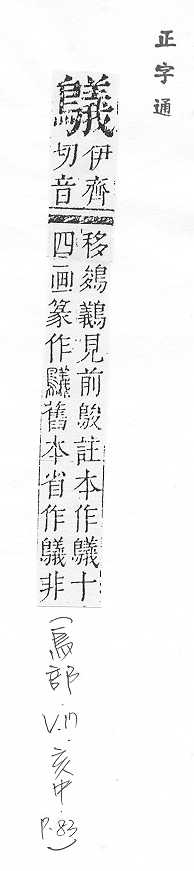 正字通
伊齊
切音
移鵕鸃見前鵔註本作十
四画篆作舊本省作非
(鳥部.V.17.亥中.P.83)